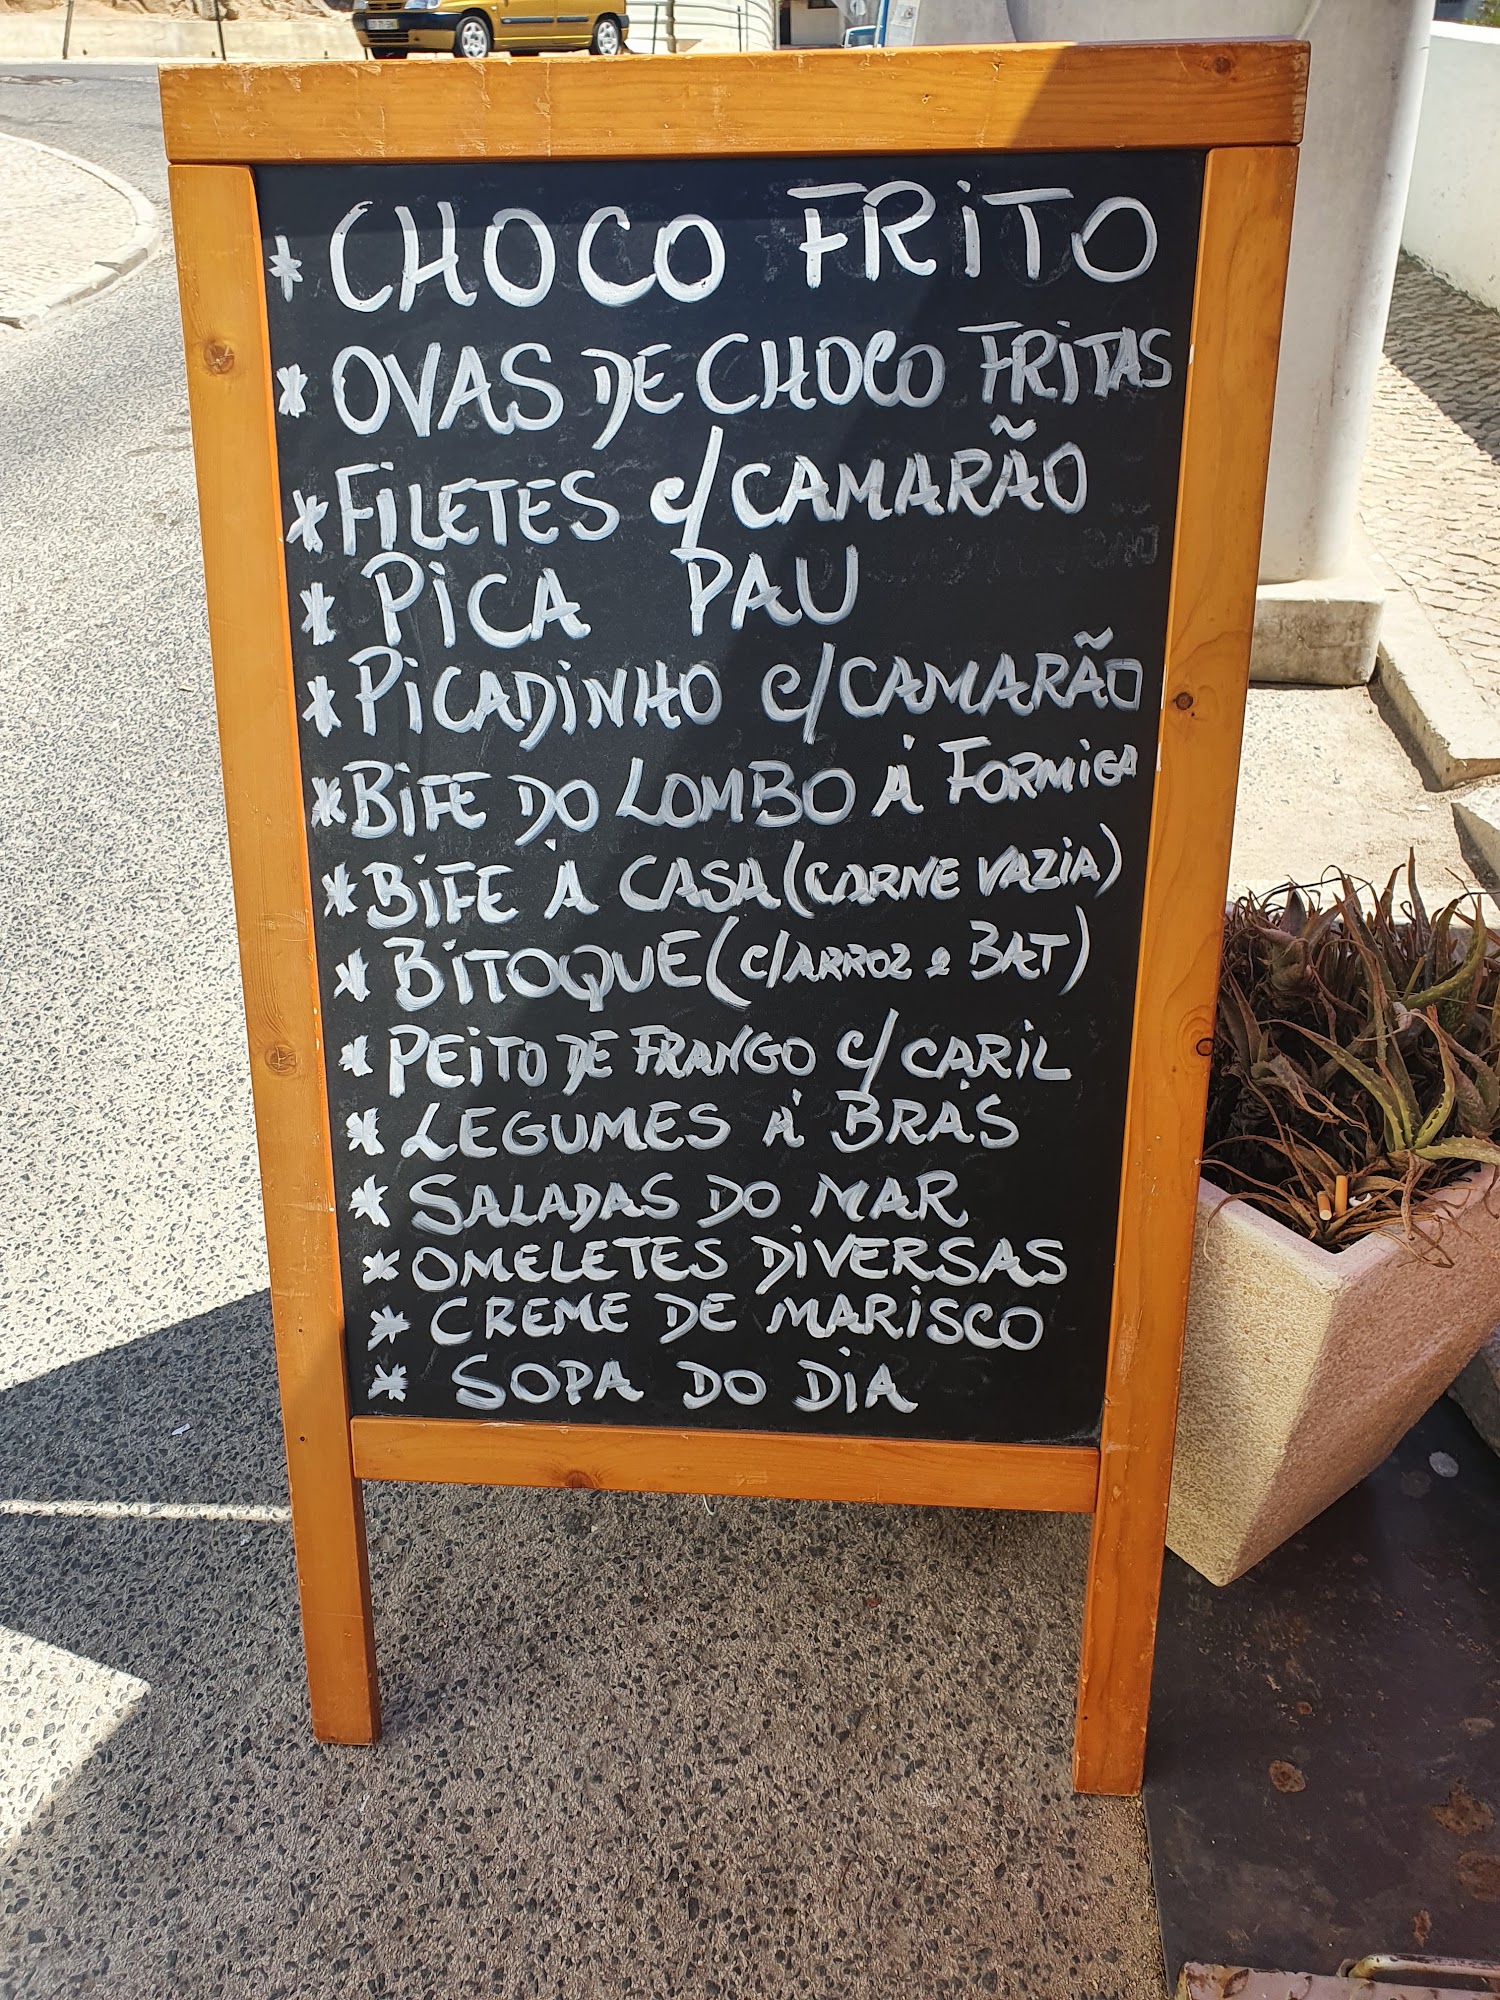 * CHOCO FRITO
* OVAS DE CHOCO FRITAS
* FILETES C/ CAMARÃO
* PICA PAU
* PICADINHO C/ CAMARÃO
* BIFE DO LOMBO Á FORMIGA
* BIFE À CASA (CARNE VAZIA)
* BITOQUE (C/ARROZ e BAT)
* PEITO DE FRANGO C/ CARIL
* LEGUMES Á BRÁS
* SALADAS DO MAR
* OMELETES DIVERSAS
* CREME DE MARISCO
* SOPA DO DIA